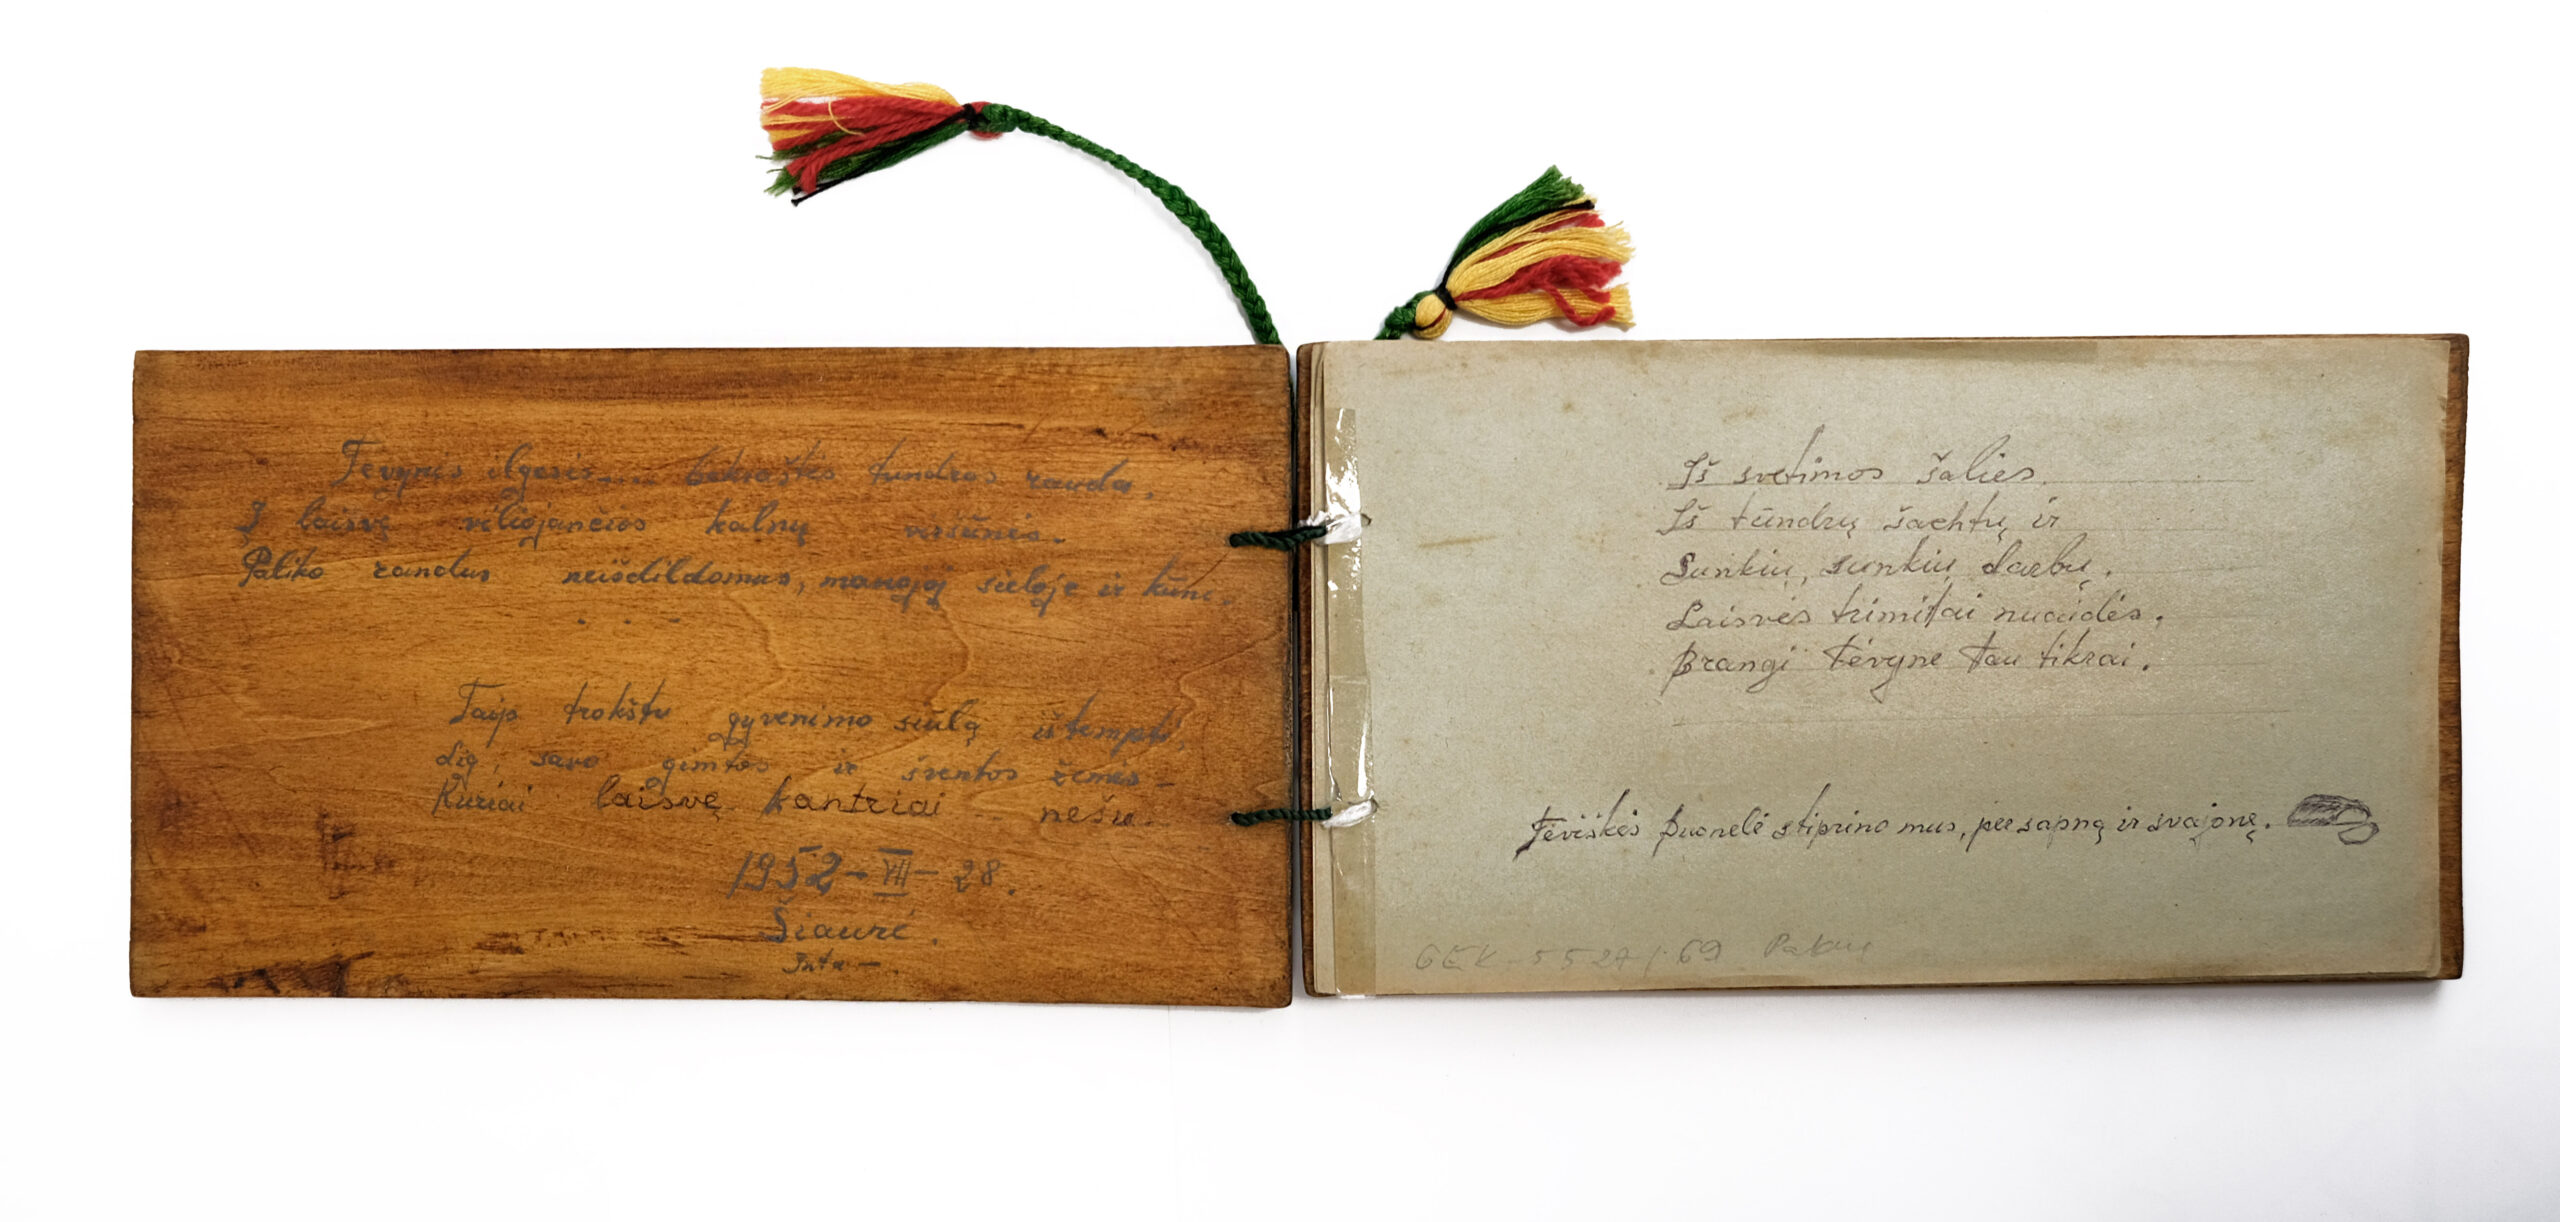 Tėvynės ilgesis.... bekraštės tundros rauda,
Į laisvę viliojančios kalnų viršūnės.
Paliko randus neišdildomus, manojoj sieloje ir kūne.
. . -
Taip trokštu gyvenimo siūlą ištempti,
lig, savo gimtos ir šventos žemės –
Kuriai laisvę kantriai nešu.
1952-VII-28.
Šiaurė.
Inta –.
Iš svetimos šalies
Iš tūndrų šachtų ir
Sunkių, sunkių darbų.
Laisvės trimitai nuaidės.
Brangi tėvyne tau tikrai.
Tėviškės puonelė stiprino mus, per sapną ir svajonę.
GEK-5527/69